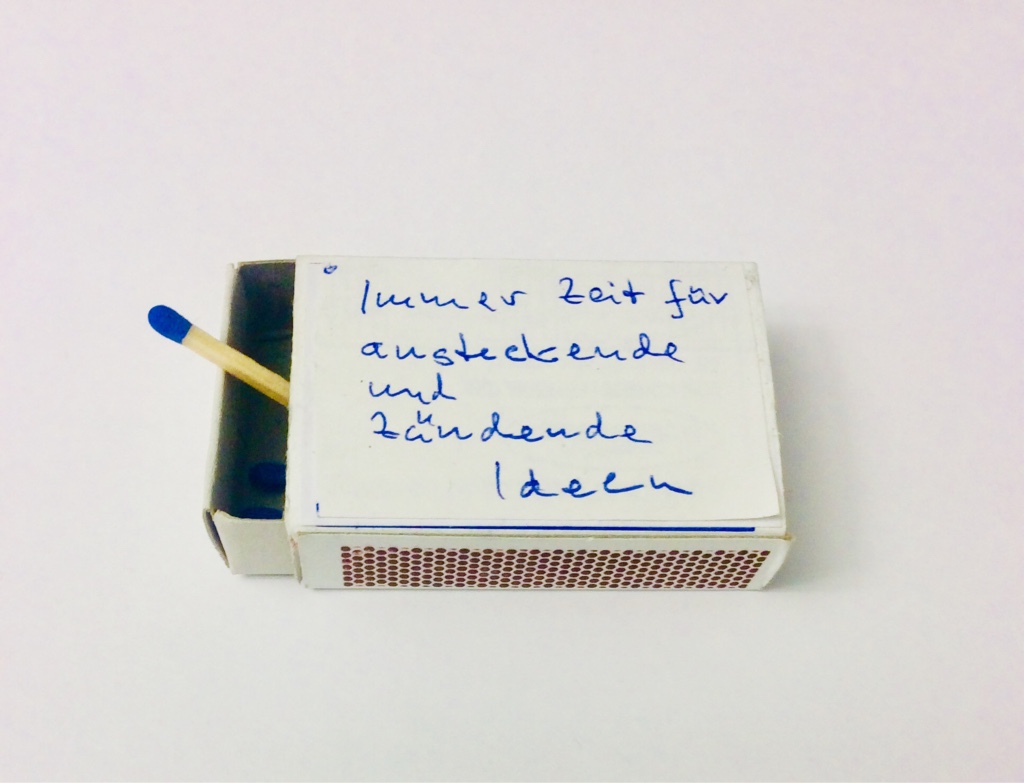 Immer Zeit für
ansteckende
und
zündende
Ideen